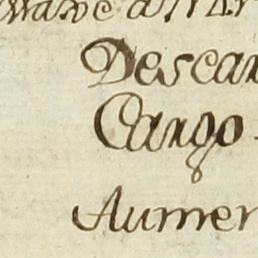 Descar
Cargo
Aumen